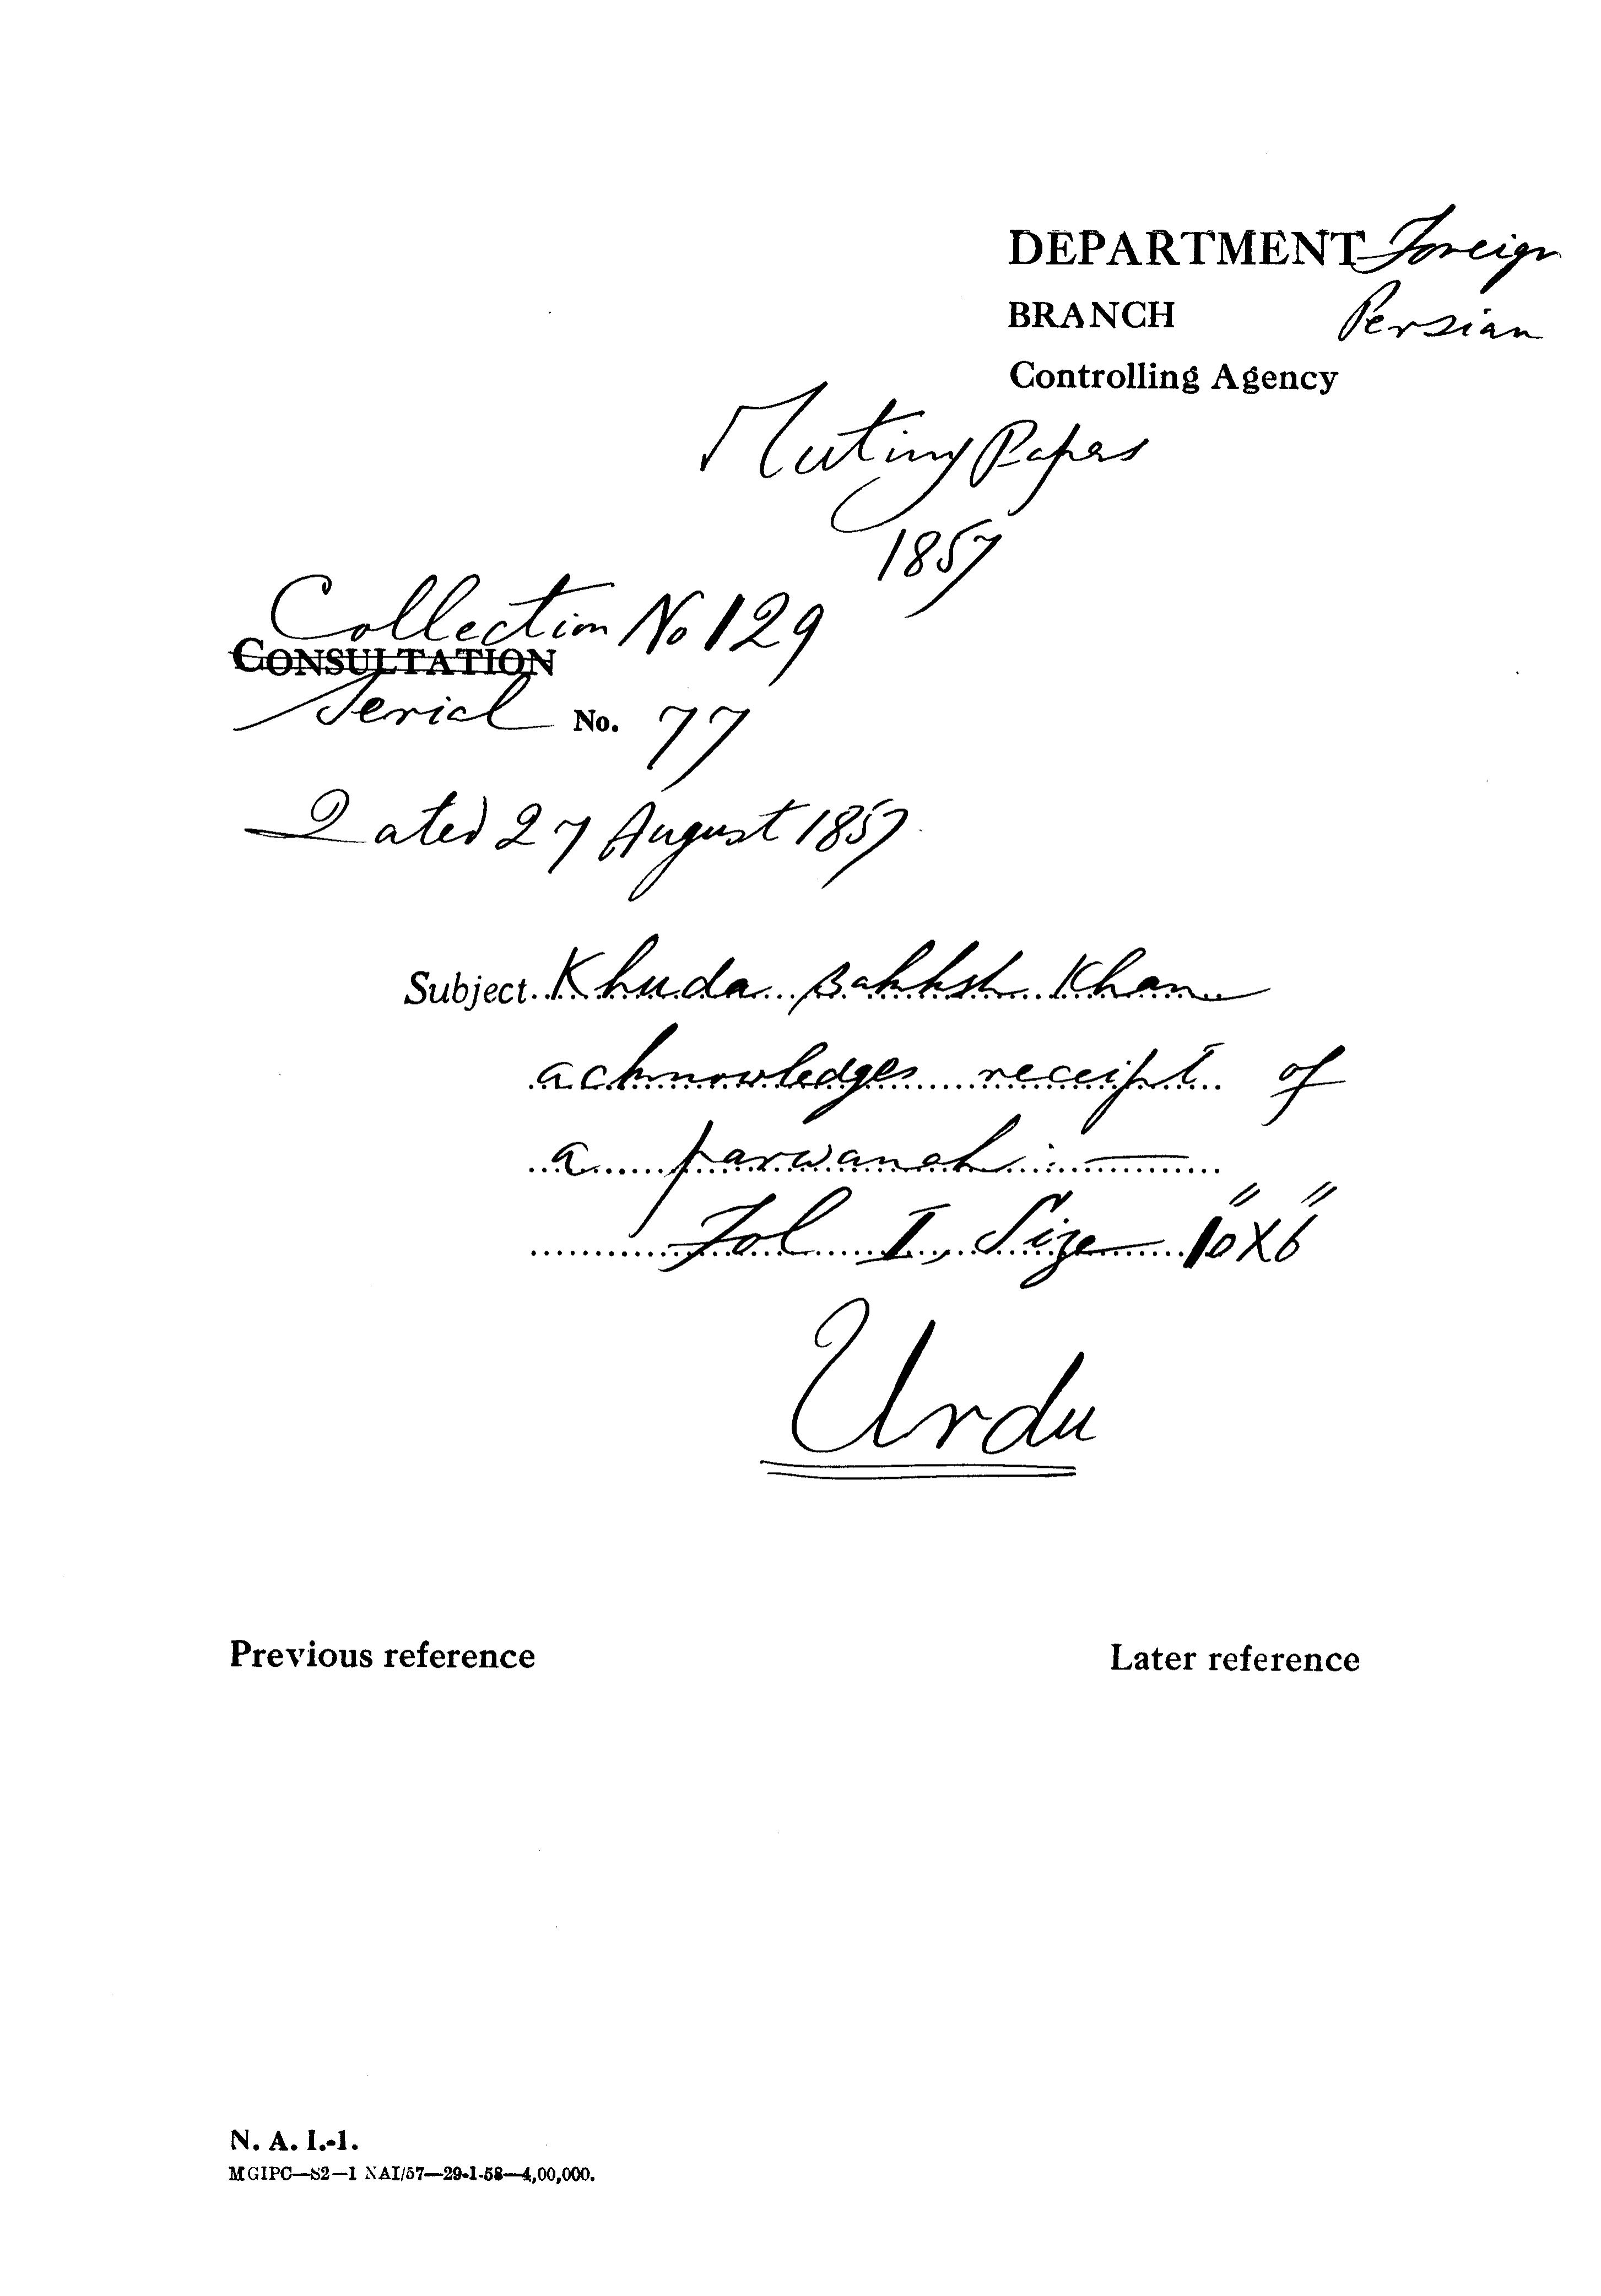 DEPARTMENT Foreign
BRANCH Persian
Controlling Agency
Mutiny Papers
1857
Collection No 129
CONSULTATION
Serial No. 77
Dated 27 August 1857
Subject Khuda Bakhsh Khan
acknowledges receipt of
a parwanah :—
Fol I, Size 10"X6"
Urdu
Previous reference Later reference
N. A. I.-1.
MGIPC—S2—1 NAI/57—29-1-58—4,00,000.